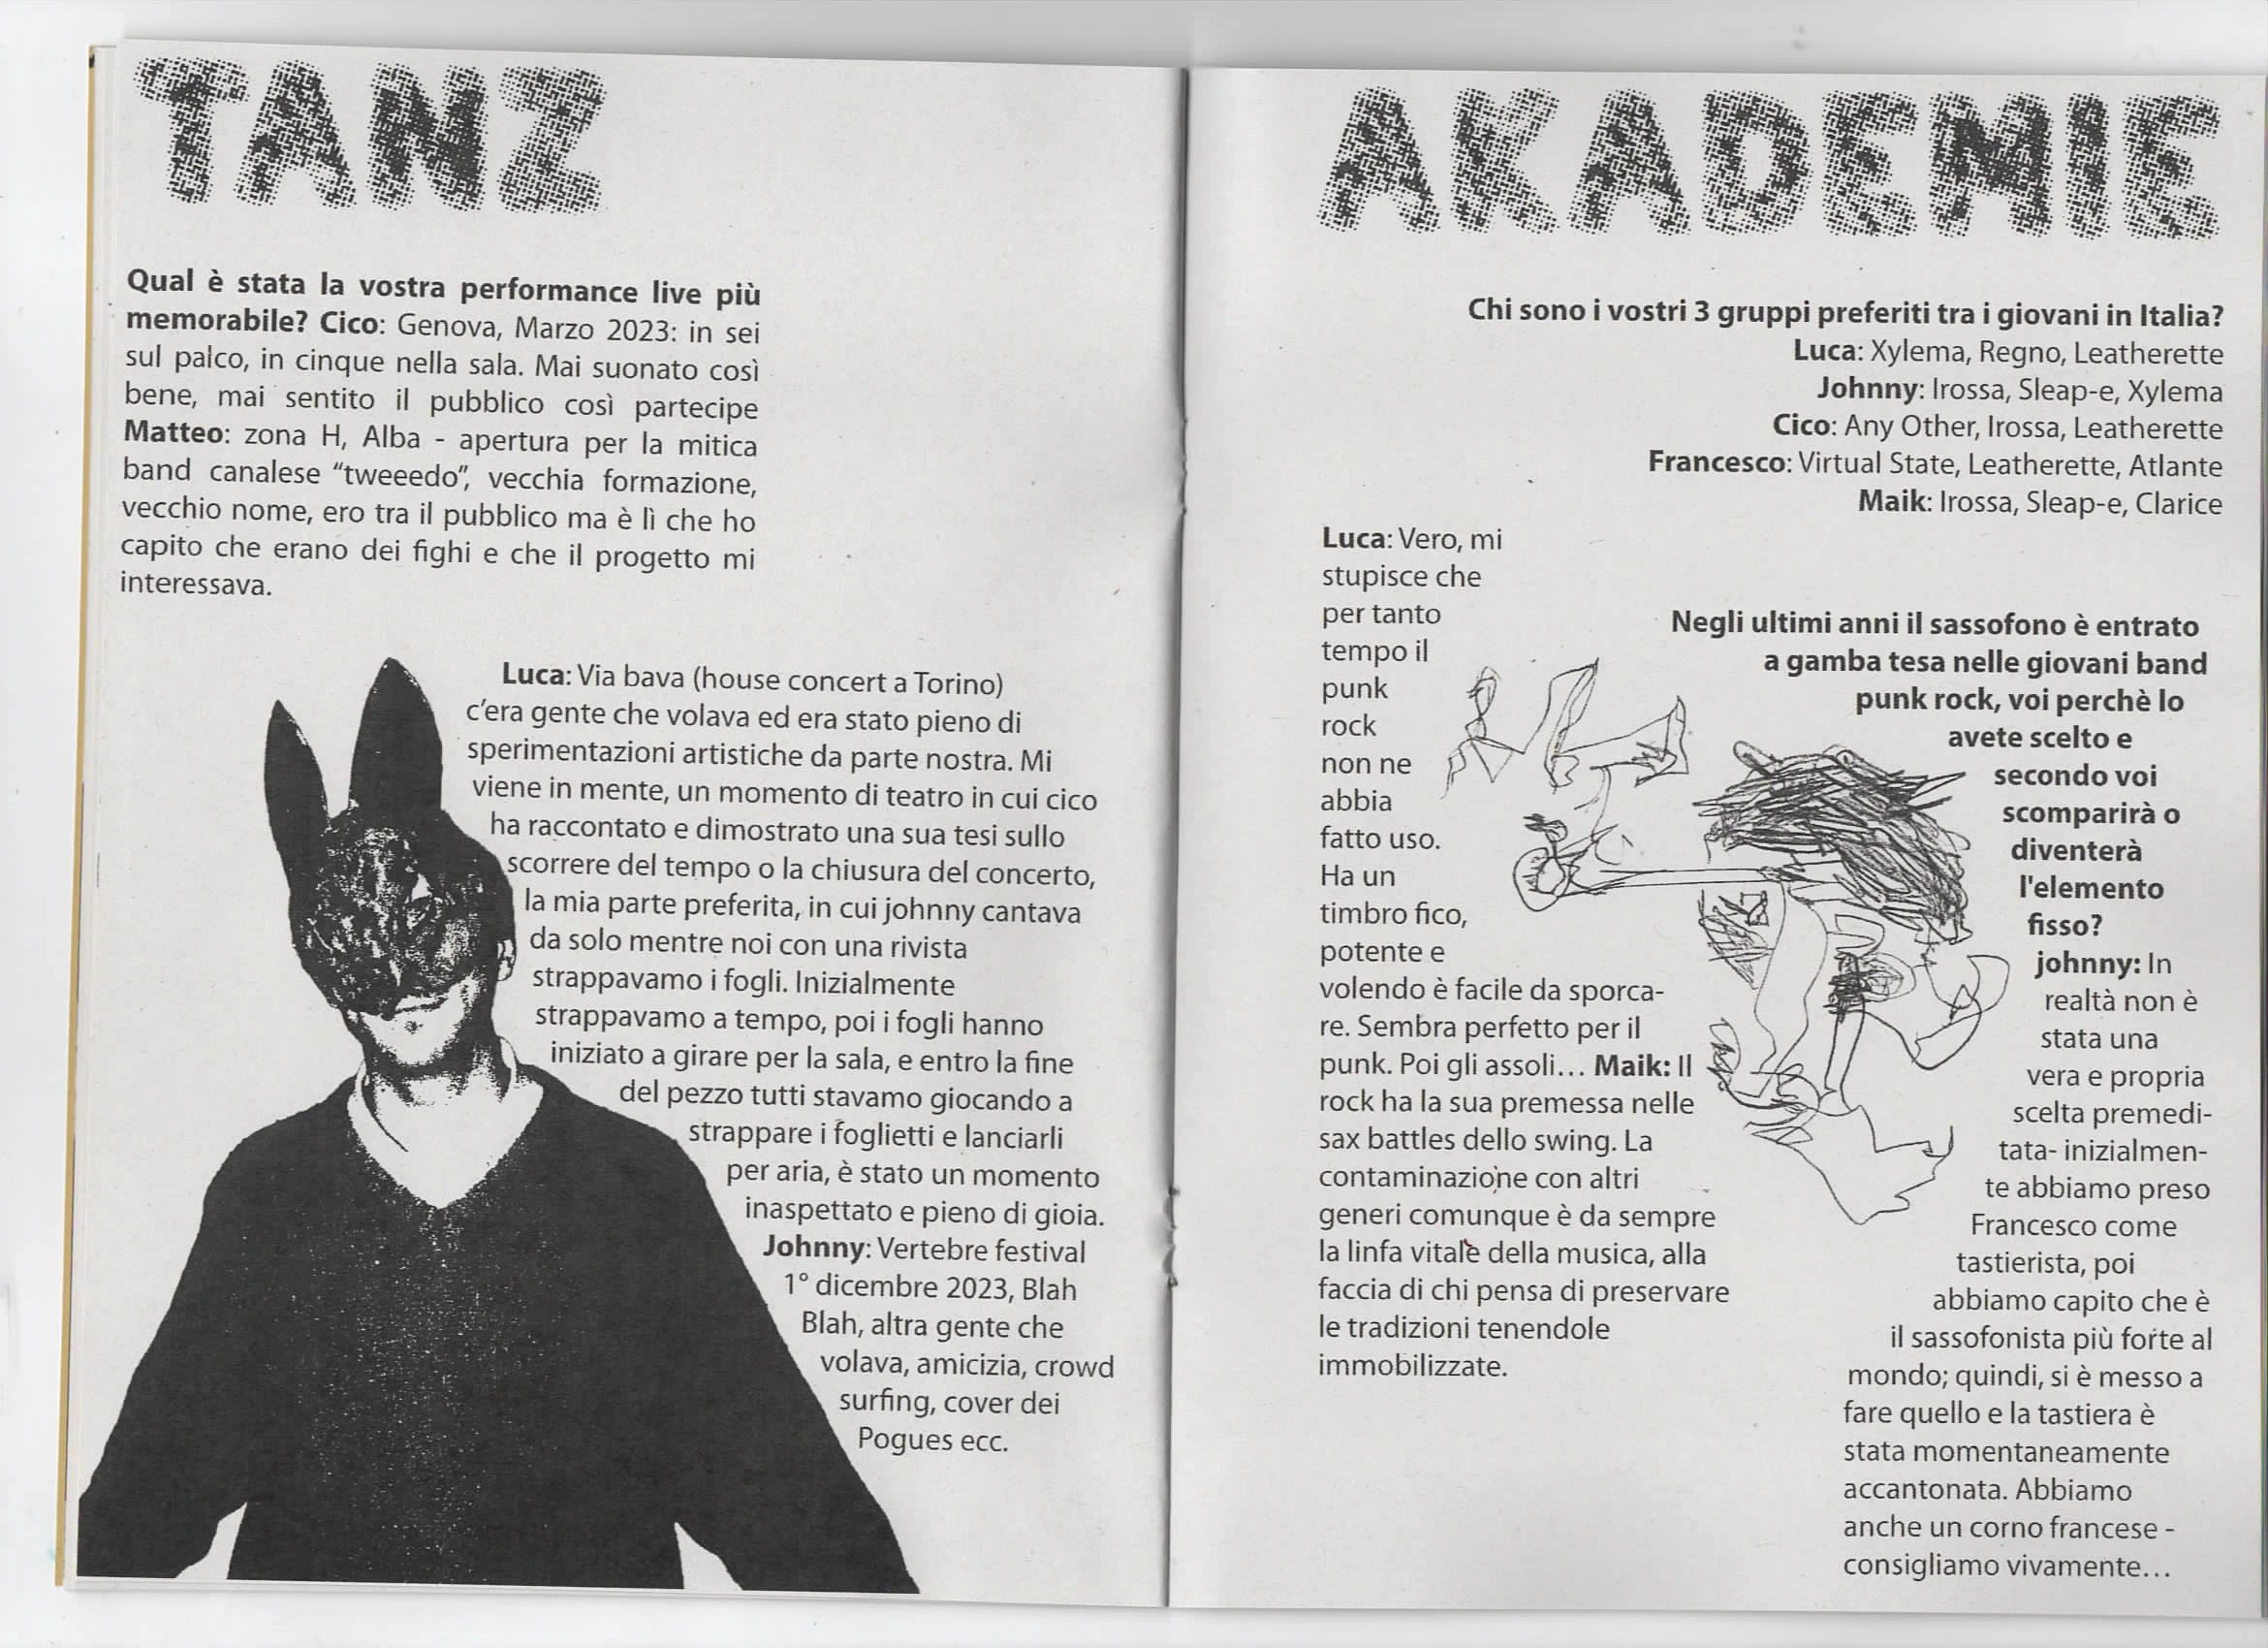 TANZ
Qual è stata la vostra performance live più
memorabile? Cico: Genova, Marzo 2023: in sei
sul palco, in cinque nella sala. Mai suonato così
bene, mai sentito il pubblico così partecipe
Matteo: zona H, Alba - apertura per la mitica
band canalese “tweeedo”, vecchia formazione,
vecchio nome, ero tra il pubblico ma è lì che ho
capito che erano dei fighi e che il progetto mi
interessava.
Luca: Via bava (house concert a Torino)
c'era gente che volava ed era stato pieno di
sperimentazioni artistiche da parte nostra. Mi
viene in mente, un momento di teatro in cui cico
ha raccontato e dimostrato una sua tesi sullo
scorrere del tempo o la chiusura del concerto,
la mia parte preferita, in cui johnny cantava
da solo mentre noi con una rivista
strappavamo i fogli. Inizialmente
strappavamo a tempo, poi i fogli hanno
iniziato a girare per la sala, e entro la fine
del pezzo tutti stavamo giocando a
strappare i foglietti e lanciarli
per aria, è stato un momento
inaspettato e pieno di gioia.
Johnny: Vertebre festival
1° dicembre 2023, Blah
Blah, altra gente che
volava, amicizia, crowd
surfing, cover dei
Pogues ecc.
AKADEMIE
Chi sono i vostri 3 gruppi preferiti tra i giovani in Italia?
Luca: Xylema, Regno, Leatherette
Johnny: Irossa, Sleap-e, Xylema
Cico: Any Other, Irossa, Leatherette
Francesco: Virtual State, Leatherette, Atlante
Maik: Irossa, Sleap-e, Clarice
Negli ultimi anni il sassofono è entrato
a gamba tesa nelle giovani band
punk rock, voi perchè lo
avete scelto e
secondo voi
scomparirà o
diventerà
l'elemento
fisso?
johnny: In
realtà non è
stata una
vera e propria
scelta premedi-
tata- inizialmen-
te abbiamo preso
Francesco come
tastierista, poi
abbiamo capito che è
il sassofonista più forte al
mondo; quindi, si è messo a
fare quello e la tastiera è
stata momentaneamente
accantonata. Abbiamo
anche un corno francese -
consigliamo vivamente…
Luca: Vero, mi
stupisce che
per tanto
tempo il
punk
rock
non ne
abbia
fatto uso.
Ha un
timbro fico,
potente e
volendo è facile da sporca-
re. Sembra perfetto per il
punk. Poi gli assoli… Maik: Il
rock ha la sua premessa nelle
sax battles dello swing. La
contaminazione con altri
generi comunque è da sempre
la linfa vitale della musica, alla
faccia di chi pensa di preservare
le tradizioni tenendole
immobilizzate.